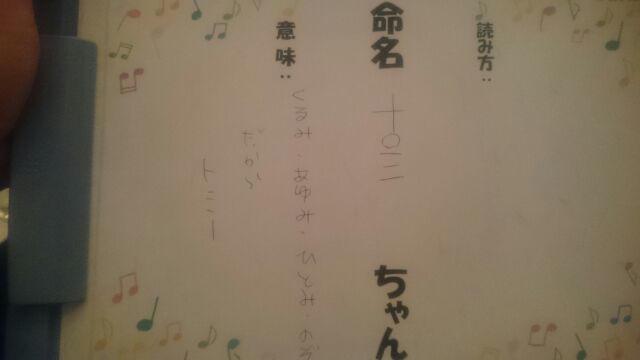 読み方:
命名 十〇三 ちゃん
意味:
くるみ・あゆみ・ひとみ・のぞ
だから
トミー